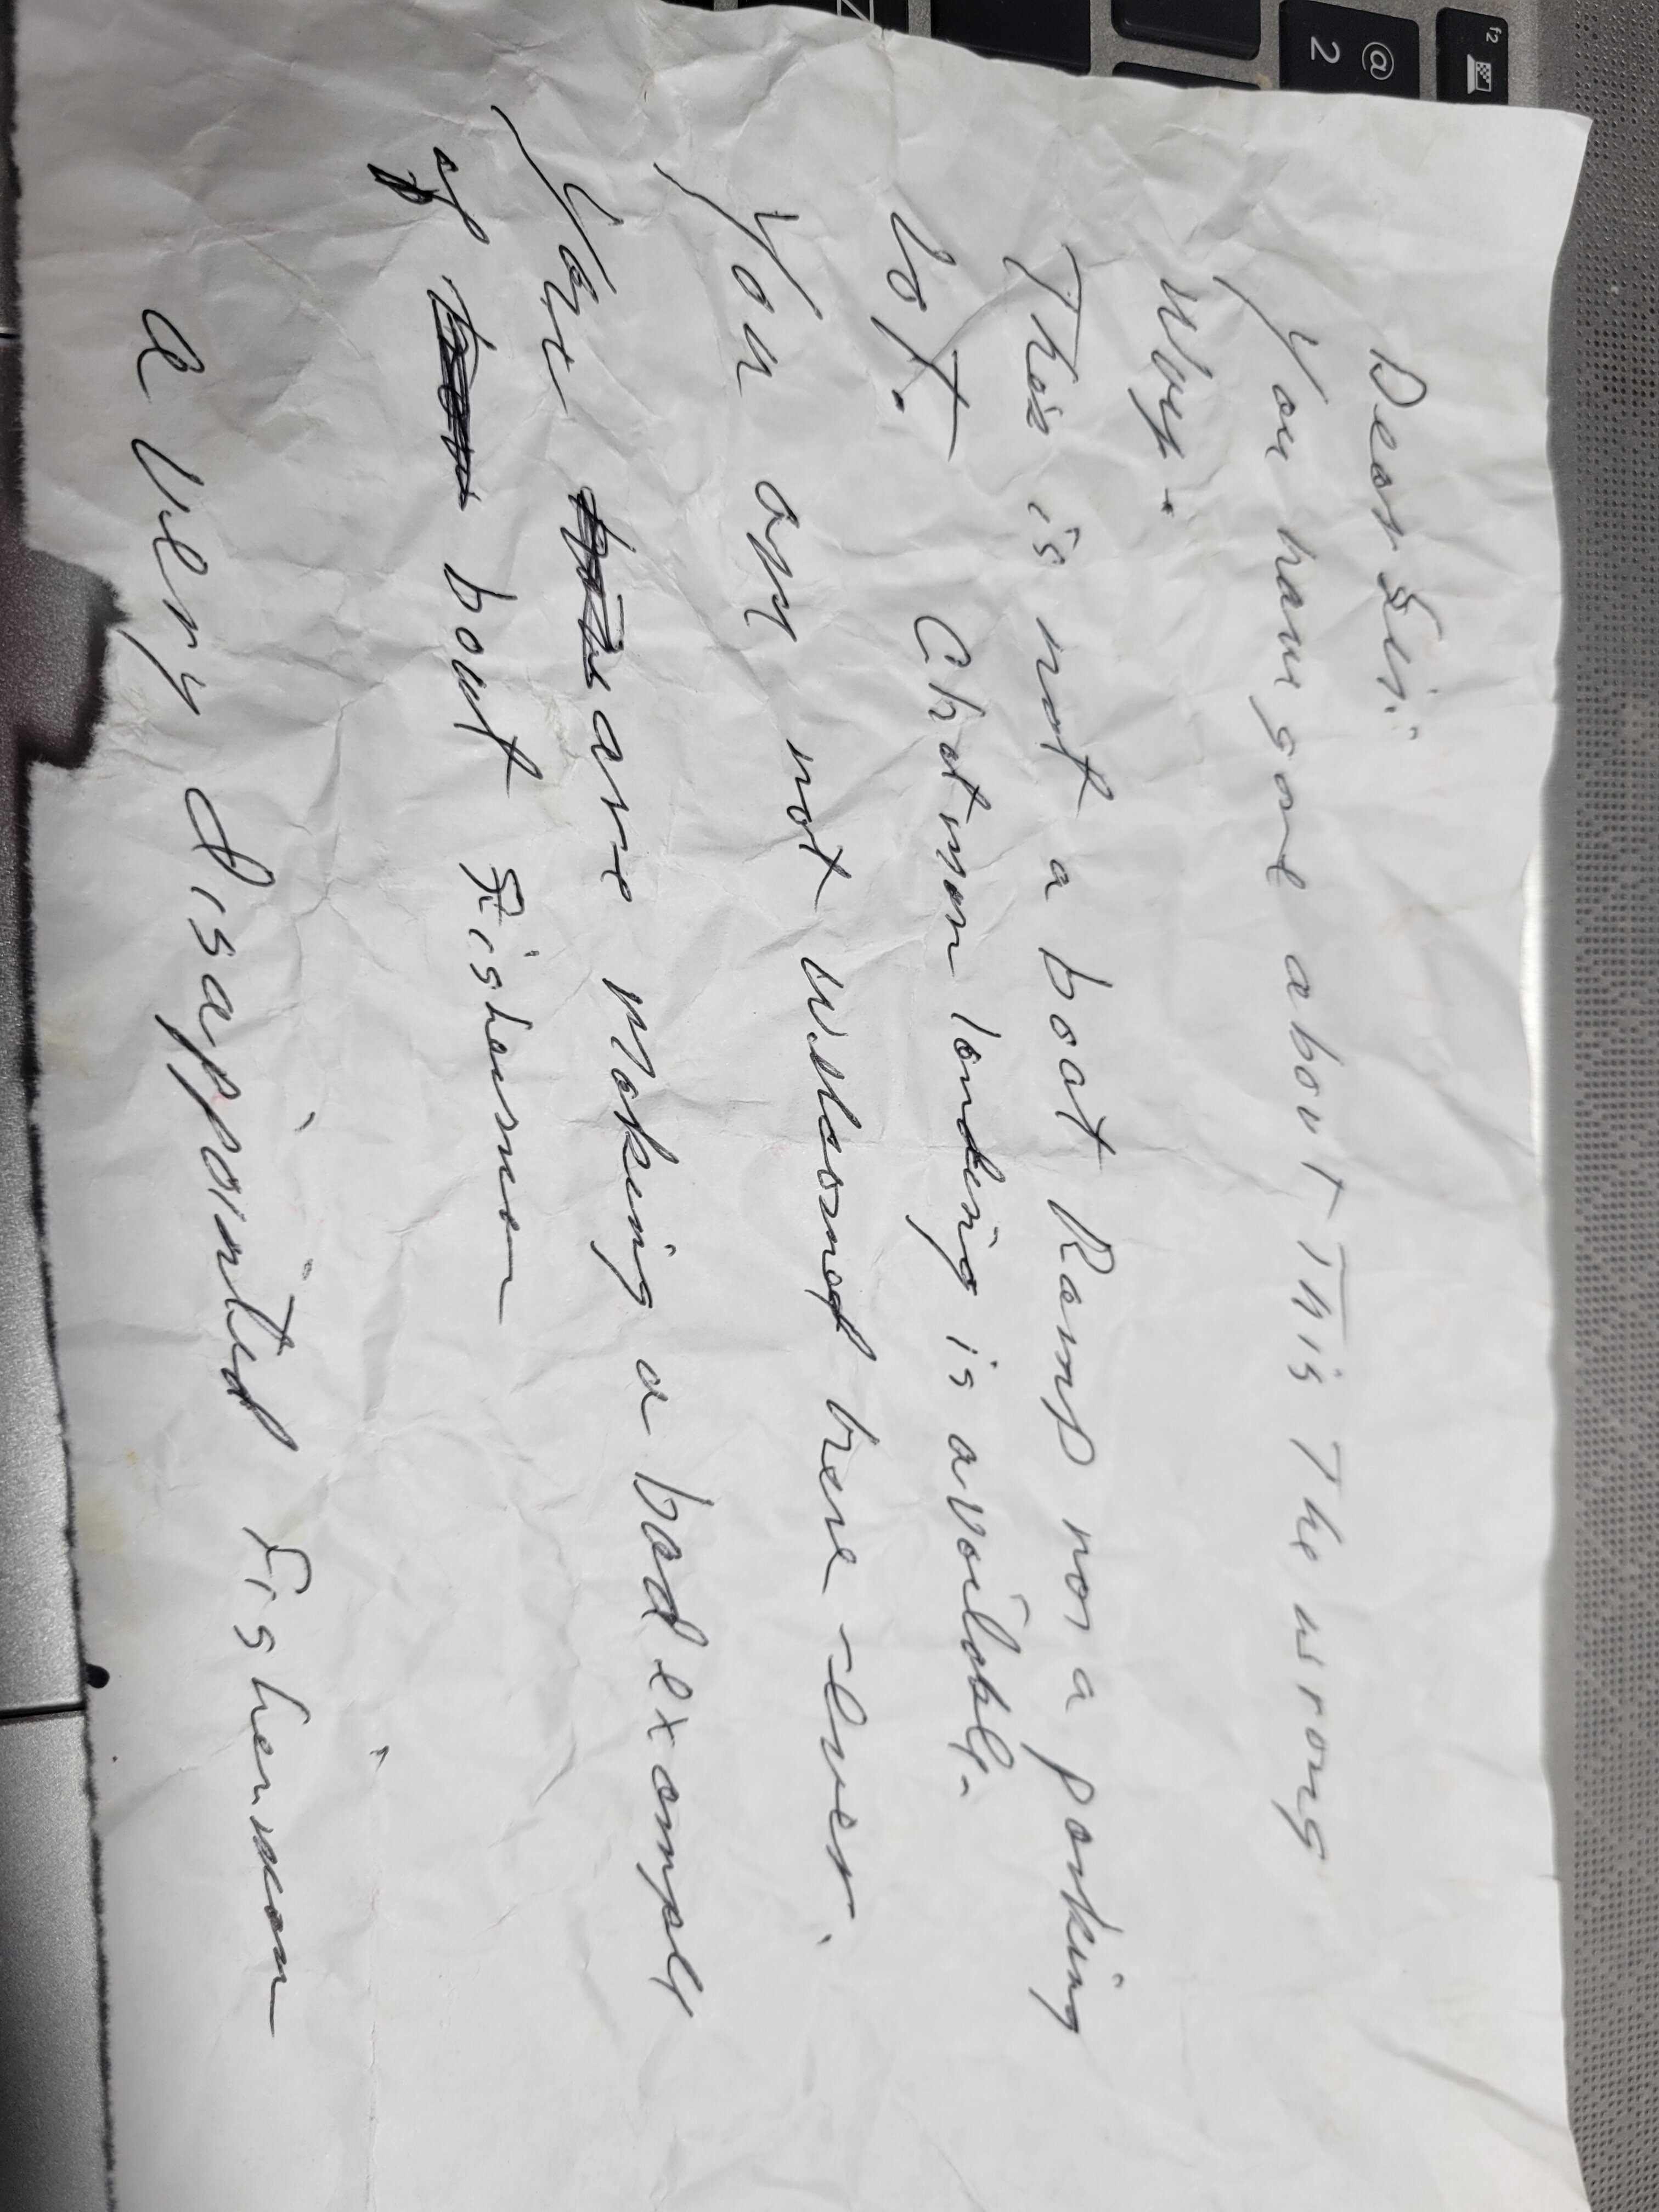 Dear Sir:
You have gone about This The wrong
Way.
This is not a boat Ramp nor a parking
lot. Chatmon landing is available.
You are not welcomed here -ever.
You are making a bad example
of bout Fishermen
a very disappointed Fisherman
@
2
f2